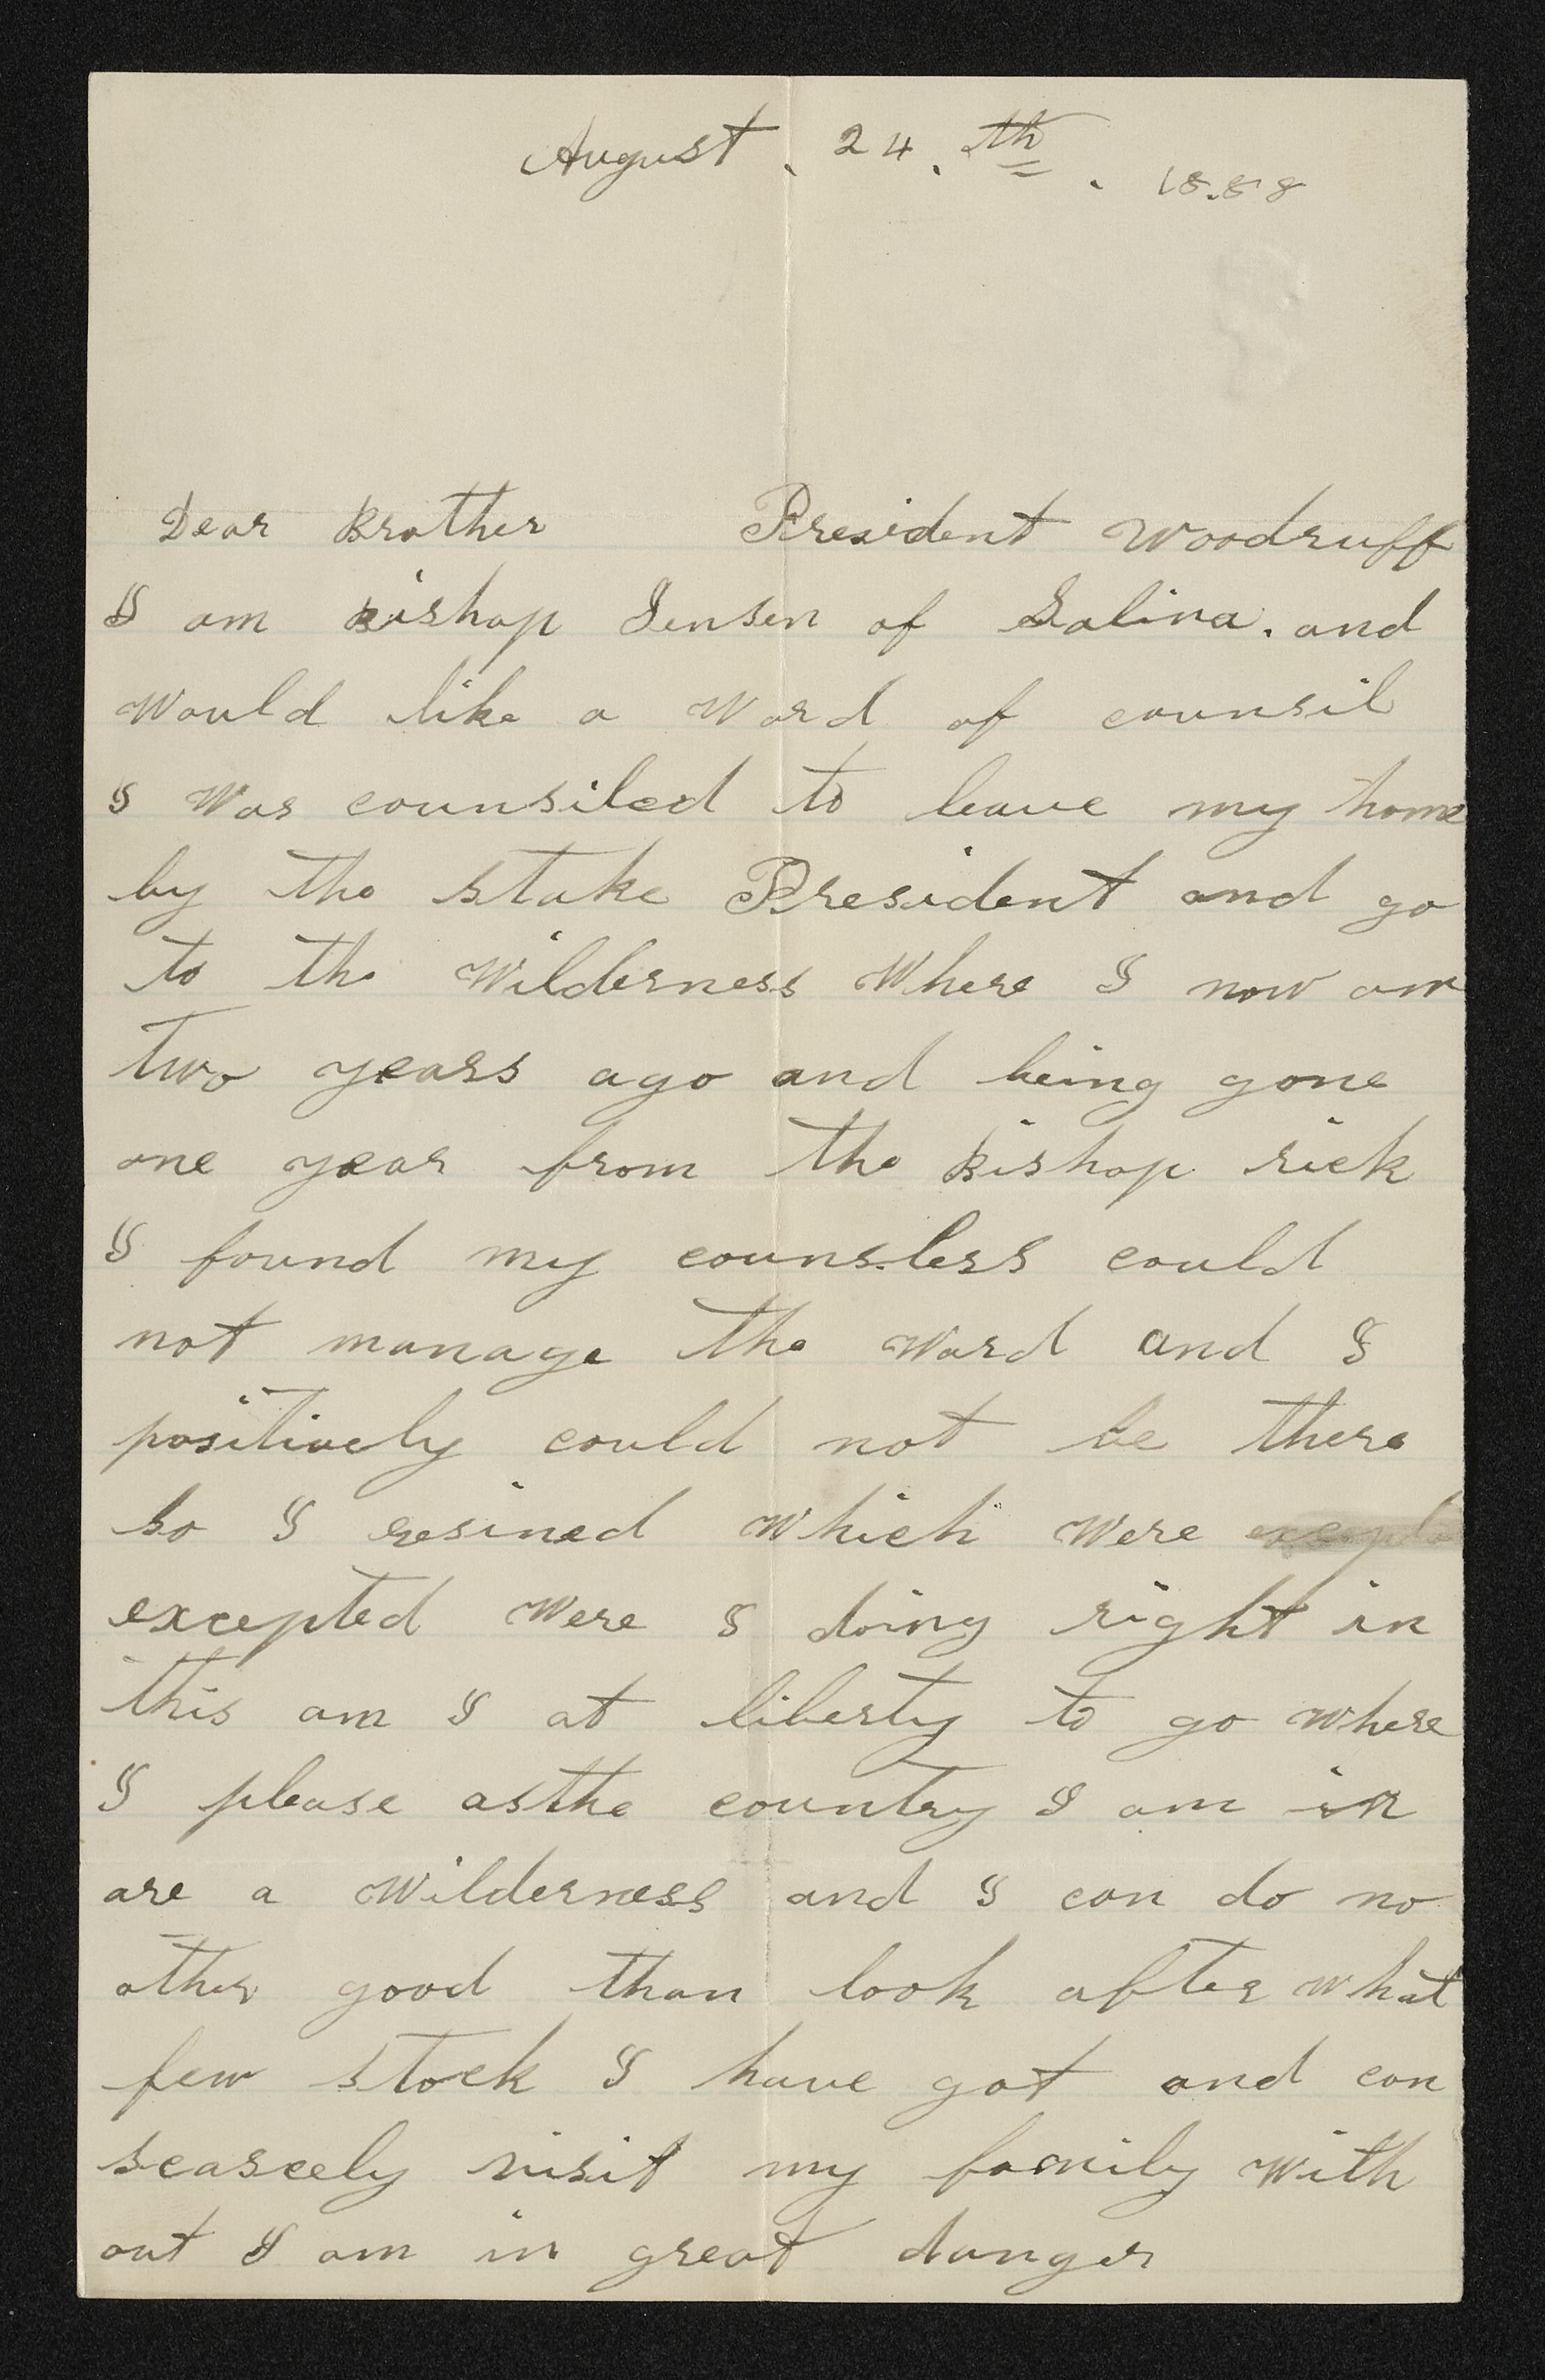 August . 24 . th . 18.88
Dear Brother President Woodruff
I am Bishop Jensen of Salina. and
would like a word of counsil
I was counsiled to leave my home
by the stake President and go
to the Wilderness Where I now am
two years ago and being gone
one year from the Bishop rick
I found my counslers could
not manage the ward and I
positively could not be there
so I resined which were
excepted were I doing right in
this am I at liberty to go where
I please asthe country I am in
are a Wilderness and I can do no
other good than look after what
few stock I have got and can
scarcely visit my family with
out I am in great danger